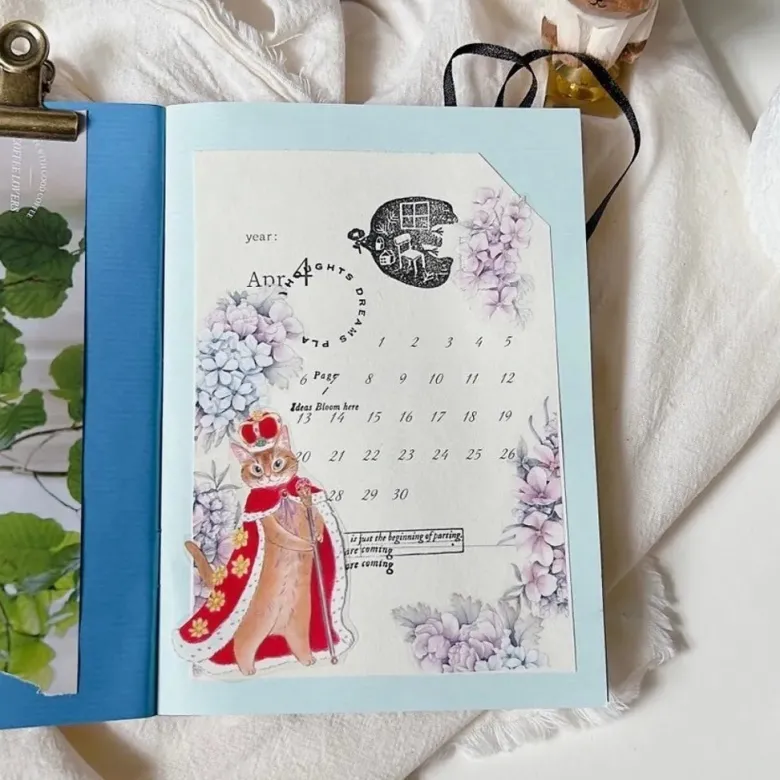 year:
Apr. 4
THOUGHTS DREAMS PLA
1 2 3 4 5
Page
6 8 9 10 11 12
Ideas Bloom here
13 14 15 16 17 18 19
20 21 22 23 24 25 26
28 29 30
is just the beginning of parting.
are coming
are coming